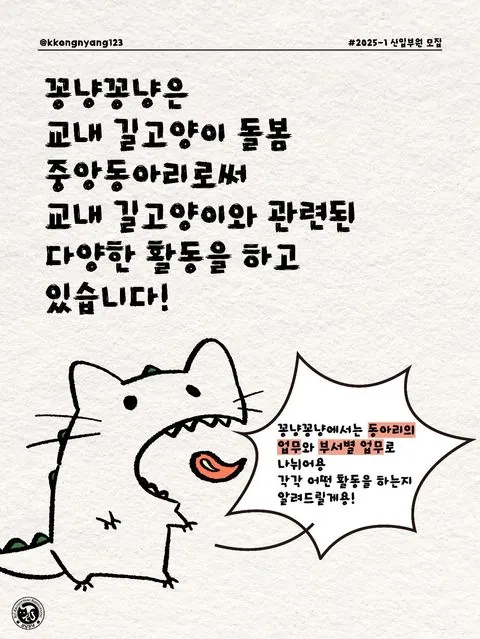 @kkongnyang123
#2025-1 신입부원 모집
꽁냥꽁냥은
교내 길고양이 돌봄
중앙동아리로써
교내 길고양이와 관련된
다양한 활동을 하고
있습니다!
꽁냥꽁냥에서는 동아리의
업무와 부서별 업무로
나뉘어용
각각 어떤 활동을 하는지
알려드릴게용!